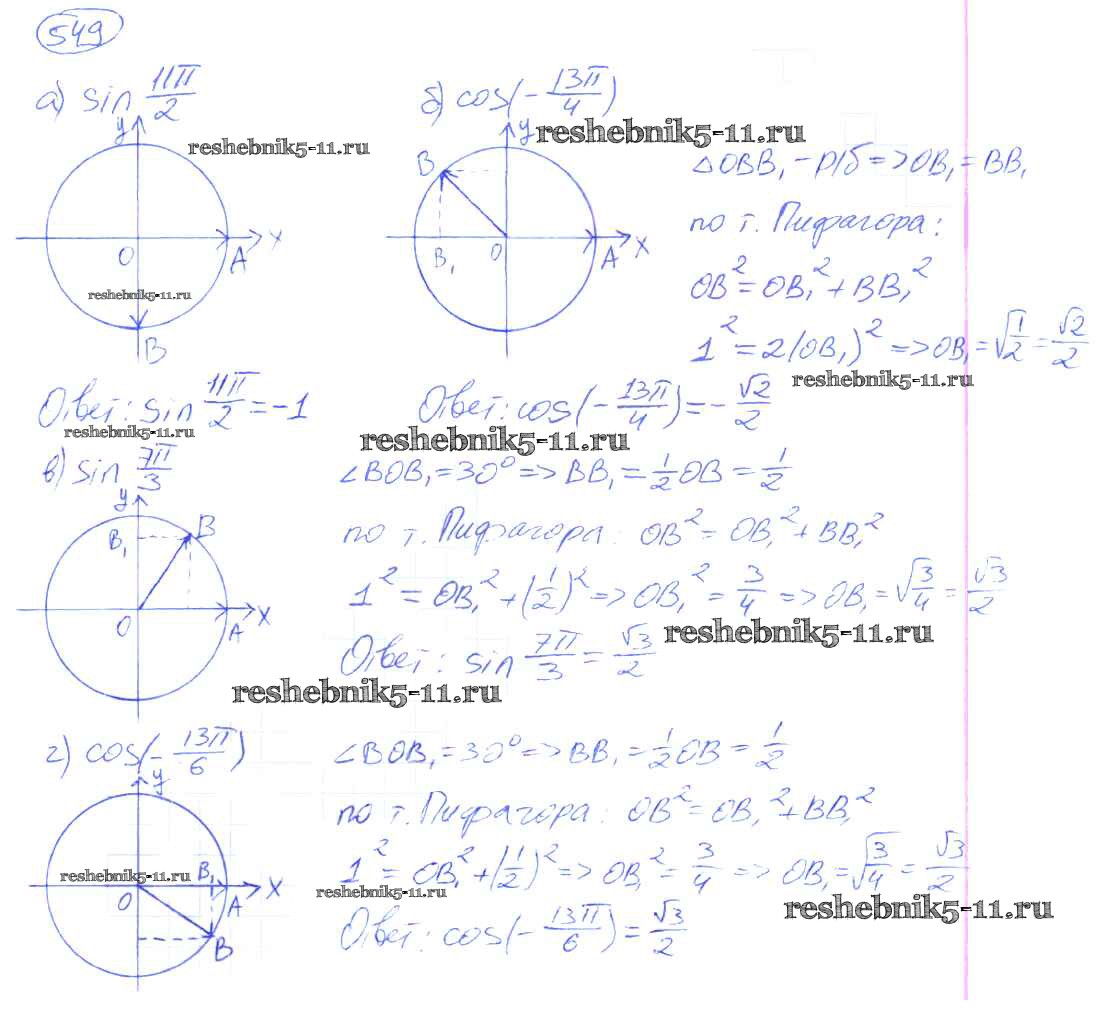 549
а) sin 11π/2
y
reshebnik5-11.ru
O
A
X
reshebnik5-11.ru
B
Ответ: sin 11π/2 = -1
reshebnik5-11.ru
б) cos(-13π/4)
y
reshebnik5-11.ru
B
B₁
O
A
X
△OBB₁ - р/б => OB₁ = BB₁
по т. Пифагора:
OB² = OB₁² + BB₁²
1² = 2(OB₁)² => OB₁ = √1/2 = √2/2
reshebnik5-11.ru
Ответ: cos(-13π/4) = -√2/2
reshebnik5-11.ru
в) sin 7π/3
y
B₁
B
O
A
X
∠BOB₁ = 30° => BB₁ = 1/2 OB = 1/2
по т. Пифагора: OB² = OB₁² + BB₁²
1² = OB₁² + (1/2)² => OB₁² = 3/4 => OB₁ = √3/4 = √3/2
reshebnik5-11.ru
Ответ: sin 7π/3 = √3/2
reshebnik5-11.ru
г) cos(-13π/6)
y
reshebnik5-11.ru
B₁
O
A
X
B
∠BOB₁ = 30° => BB₁ = 1/2 OB = 1/2
по т. Пифагора: OB² = OB₁² + BB₁²
1² = OB₁² + (1/2)² => OB₁² = 3/4 => OB₁ = √3/4 = √3/2
reshebnik5-11.ru
reshebnik5-11.ru
Ответ: cos(-13π/6) = √3/2